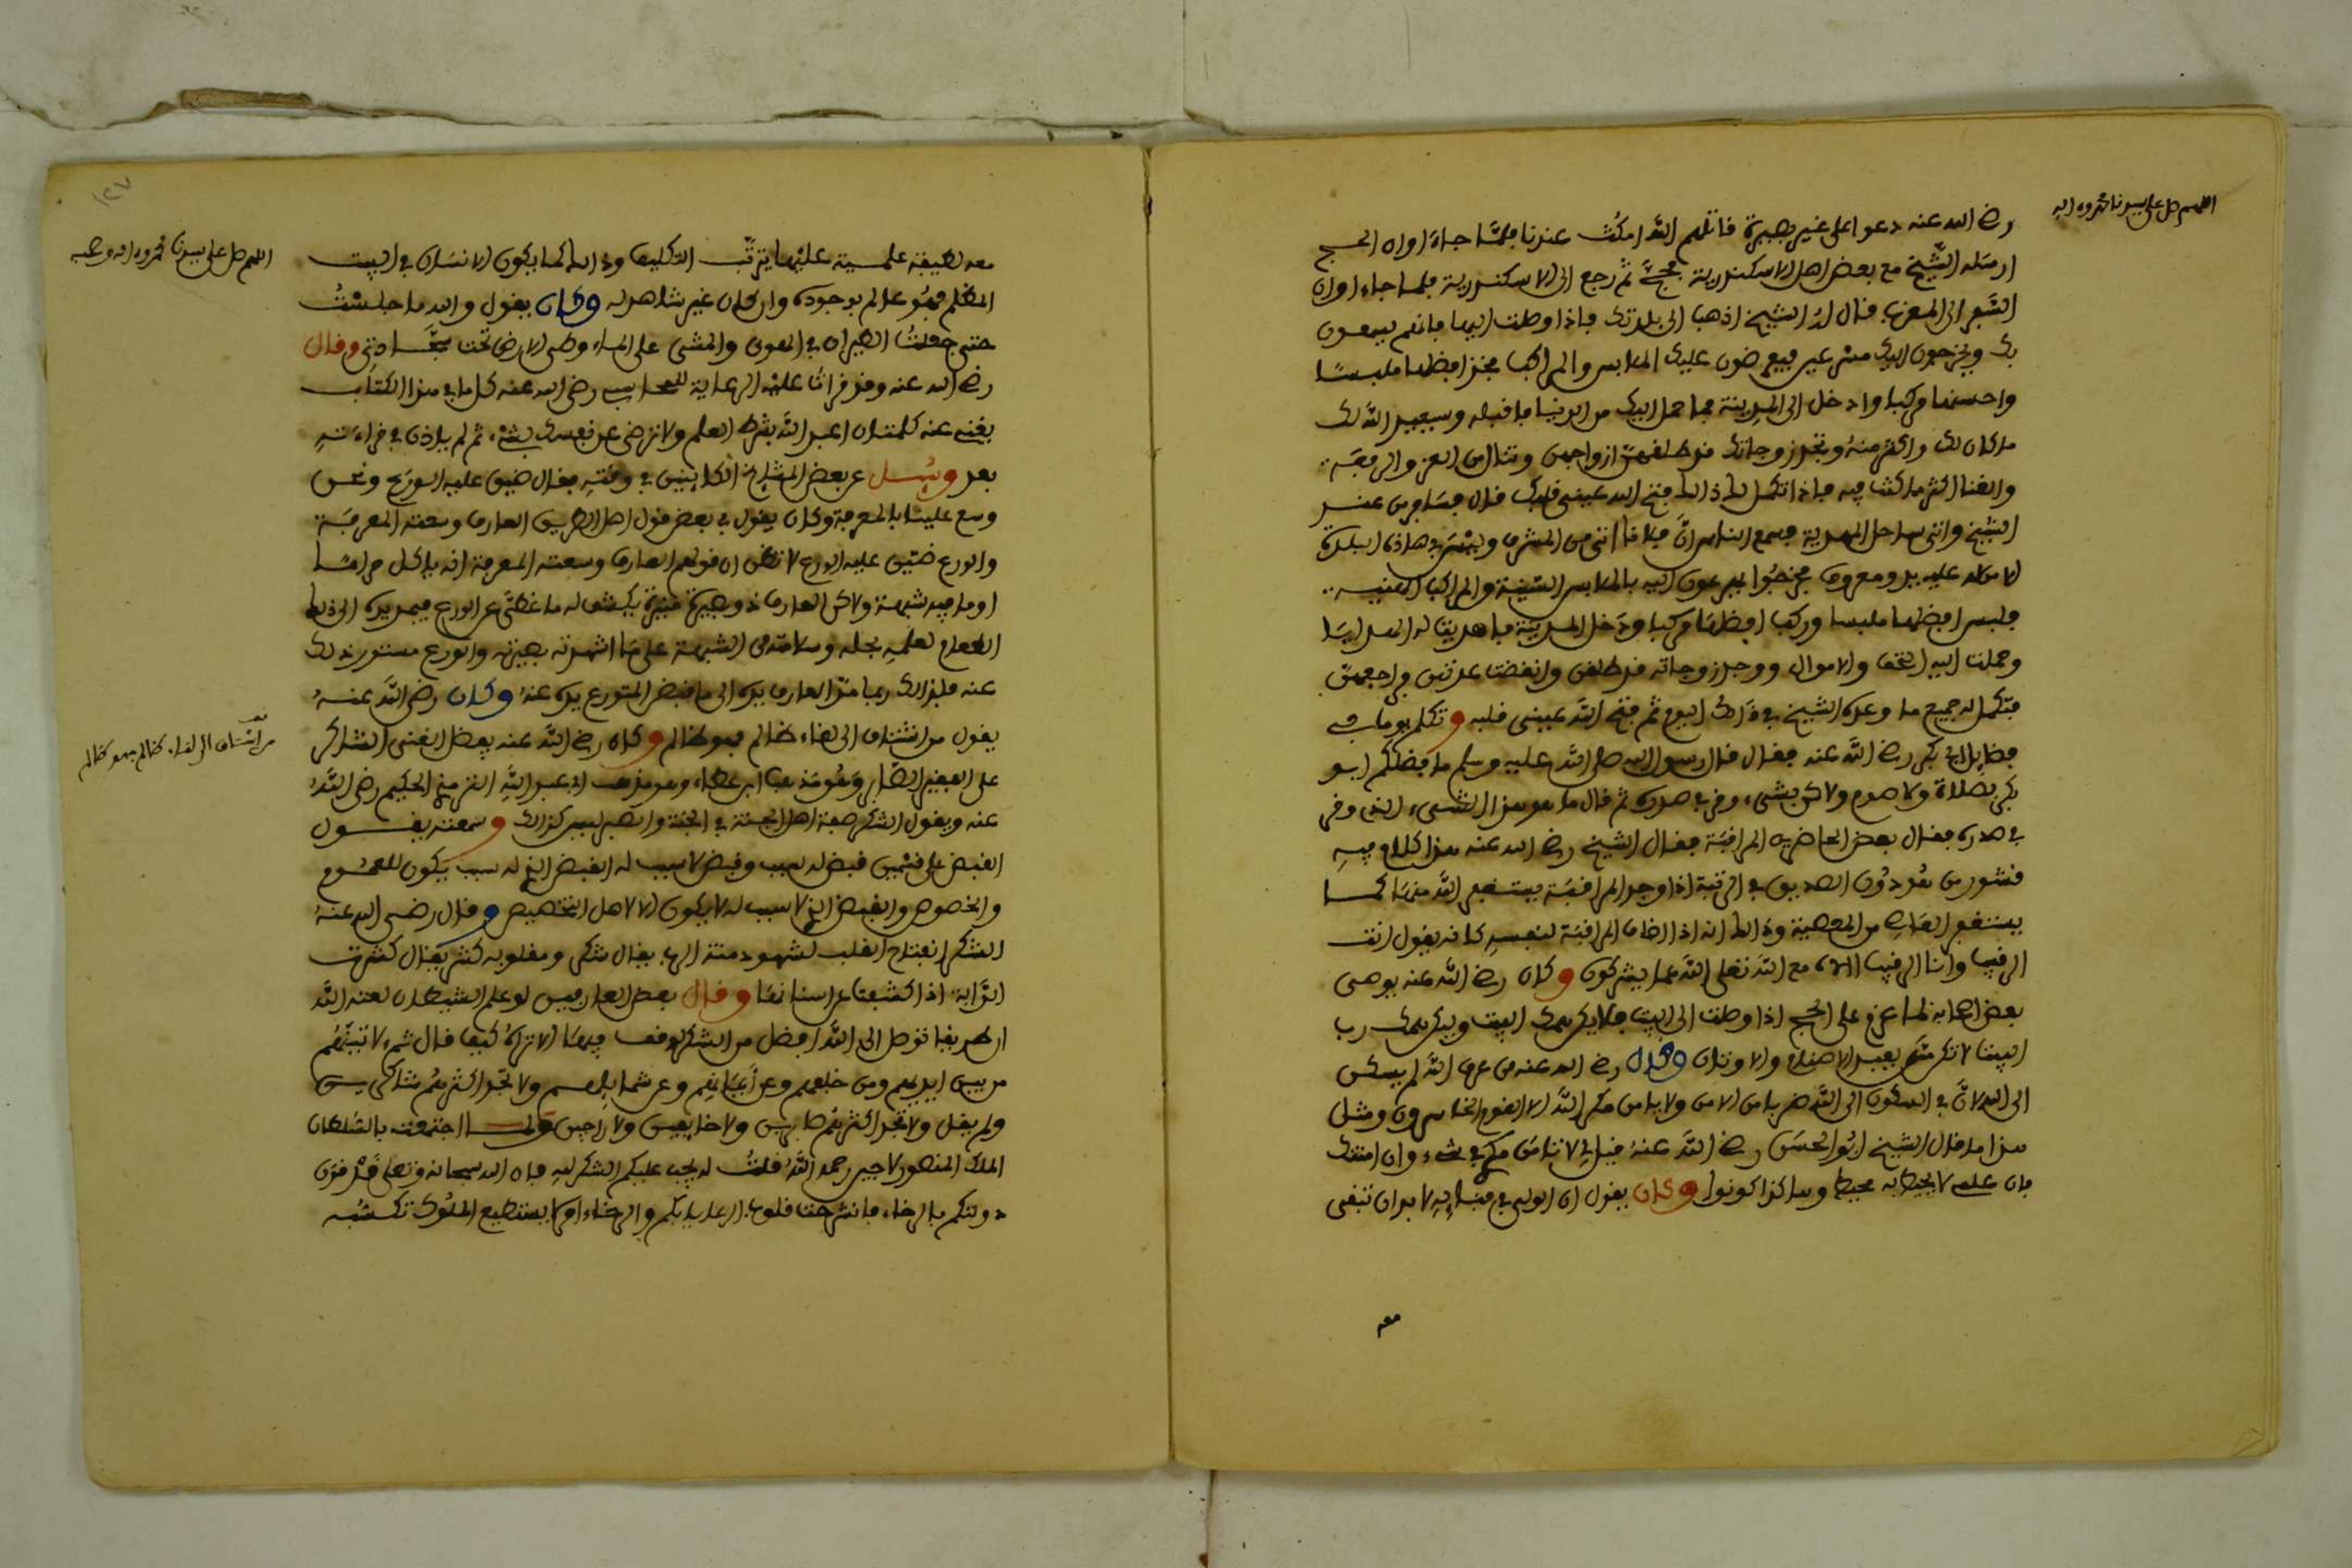 اللهم صل على سيدنا محمد وءاله
رضي الله عنه دعوا على غير بصيرة قاتلهم الله امكث عندنا فلما جاء اوان الحج
ارسله الشيخ مع بعض اهل الاسكندرية فحج ثم رجع الى الاسكندرية فلما جاء اوان
السفر الى المغرب قال له الشيخ اذهب الى بلدتك فاذا وصلت اليها فانهم يسمعون
بك ويخرجون اليك مسرعين فيعرضون عليك الملابس والمراكب فخذ افضلها ملبسا
واحسنها مركبا وادخل الى المدينة فما حمل اليك من الدنيا فاقبله وسيعيد الله لك
ما كان لك واكثر منه وتجد زوجاتك قد طلقهن ازواجهن وتنال من العز والرفعة
والغنا اكثر ما كنت فيه فاذا تكمل لك ذالك فتح الله عيني قلبك قال فسافر من عند
الشيخ واتى ساحل المهدية فسمع الناس ان فلانا اتى من المشرق وليس في هاذه البلدة
الا من له عليه يد ومعروف فخرجوا يهرعون اليه بالملابس السنية والمراكب
فلبس افضلها ملبسا وركب افضلها مركبا ودخل المدينة فاهديت له الهدايا
وحملت اليه التحف والاموال ووجد زوجاته قد طلقن وانقضت عدتهن فراجعهن
فتكمل له جميع ما وعده الشيخ في ذالك اليوم ثم فتح الله عيني قلبه وتكلم يوما في
فضايل ابي بكر رضي الله عنه فقال قال رسول الله صلى الله عليه وسلم ما فضلكم ابو
بكر بصلاة ولا صوم ولاكن بشيء وقر في صدره ثم قال ما هو هذا الشيء الذي وقر
في صدره فقال بعض الحاضرين المراقبة فقال الشيخ رضي الله عنه هذا كلام فيه
قشور من هو دون الصديق في الرتبة اذا وجد المراقبة يستغفر الله منها كما
يستغفر العاصي من المعصية وذالك انه اذا اضاف المراقبة لنفسه كانه يقول انت
الرقيب وانا الرقيب االه مع الله تعلى الله عما يشركون وكان رضي الله عنه يوصي
بعض اصحابه لما عزم على الحج اذا وصلت الى البيت فلا يكن همك البيت وليكن همك رب
البيت لا تكن ممن يعبد الاصنام والاوثان وقال رضي الله عنه من عرف الله لم يسكن
الى الله لان في السكون الى الله ضربا من الامن ولا يامن مكر الله الا القوم الخاسرون ومثل
هذا ما قال الشيخ ابو الحسن رضي الله عنه قيل لي لا تامن مكري في شيء وان امنتك
فان علمي لا يحيط به محيط وهاكذا كونوا وكان يقول ان الولي في فنايه لا بد ان تبقى
معه
١٢٧
اللهم صل على سيدنا محمد وءاله وصحبه
معه لطيفة علمية عليها يترتب التكليف وذالك كما يكون الانسان في البيت
المظلم فهو عالم بوجوده وان كان غير شاهد له وكان يقول والله ما جلست
حتى جعلت الطيران في الهوى والمشي على الماء وطي الارض تحت سجادتي وقال
رضي الله عنه وقد قرات عليه الرعاية للمحاسبي رضي الله عنه كل ما في هذا الكتاب
يغني عنه كلمتان اعبد الله بشرط العلم ولا ترضى عن نفسك بشيء ثم لم ياذن في قراءته
بعد وسئل عن بعض المشايخ الكاينين في وقته فقال ضيق عليه الورع ونحن
وسع علينا بالمعرفة وكان يقول في بعض قول اهل الطريق العارف وسعته المعرفة
والورع ضيق عليه الورع لا تظن ان قولهم العارف وسعته المعرفة انه ياكل حراما
او ما فيه شبهة ولاكن العارف ذو بصيرة منيرة يكشف له ما غطي عن الورع فيمد يده الى ذالك
الطعام لعلمه بحله وسلامته من الشبهة على ما اشهدته بصيرته والورع مستور ذالك
عنه فلذالك ربما مد العارف يده الى ما قبض المتورع يده عنه وكان رضي الله عنه
يقول من اشتاق الى لقاء ظالم فهو ظالم وكان رضي الله عنه يفضل الغني الشاكر
على الفقير الصابر وهو مذهب ابن عطاء وهو مذهب ابي عبد الله الترمذي الحكيم رضي الله
عنه ويقول الشكر صفة اهل الجنة في الجنة والصبر ليس كذالك وسمعته يقول
القبض على قسمين قبض له سبب وقبض لا سبب له القبض الذي له سبب يكون للعموم
والخصوص والقبض الذي لا سبب له لا يكون الا لاهل التخصيص وقال رضي الله عنه
الشكر انفتاح القلب لشهود منة الرب يقال شكر ومقلوبه كشر يقال كشرت
الدابة اذا كشفت عن اسنانها وقال بعض العارفين لو علم الشيطان لعنه الله
ان طريقا توصل الى الله افضل من الشكر لوقف فيها الا تراه كيف قال ثم لا تينهم
من بين ايديهم ومن خلفهم وعن ايمانهم وعن شمايلهم ولا تجد اكثرهم شاكرين
ولم يقل ولا تجد اكثرهم صابرين ولا خايفين ولا راجين ولما اجتمعت بالسلطان
الملك المنصور لاجين رحمه الله قلت له يجب عليكم الشكر لله فان الله سبحانه وتعلى قد قرن
دولتكم بالرخاء فانشرحت قلوب الرعايا بكم والرخاء امر لا يستطيع الملوك تكسبه
من اشتاق الى لقاء ظالم فهو ظالم